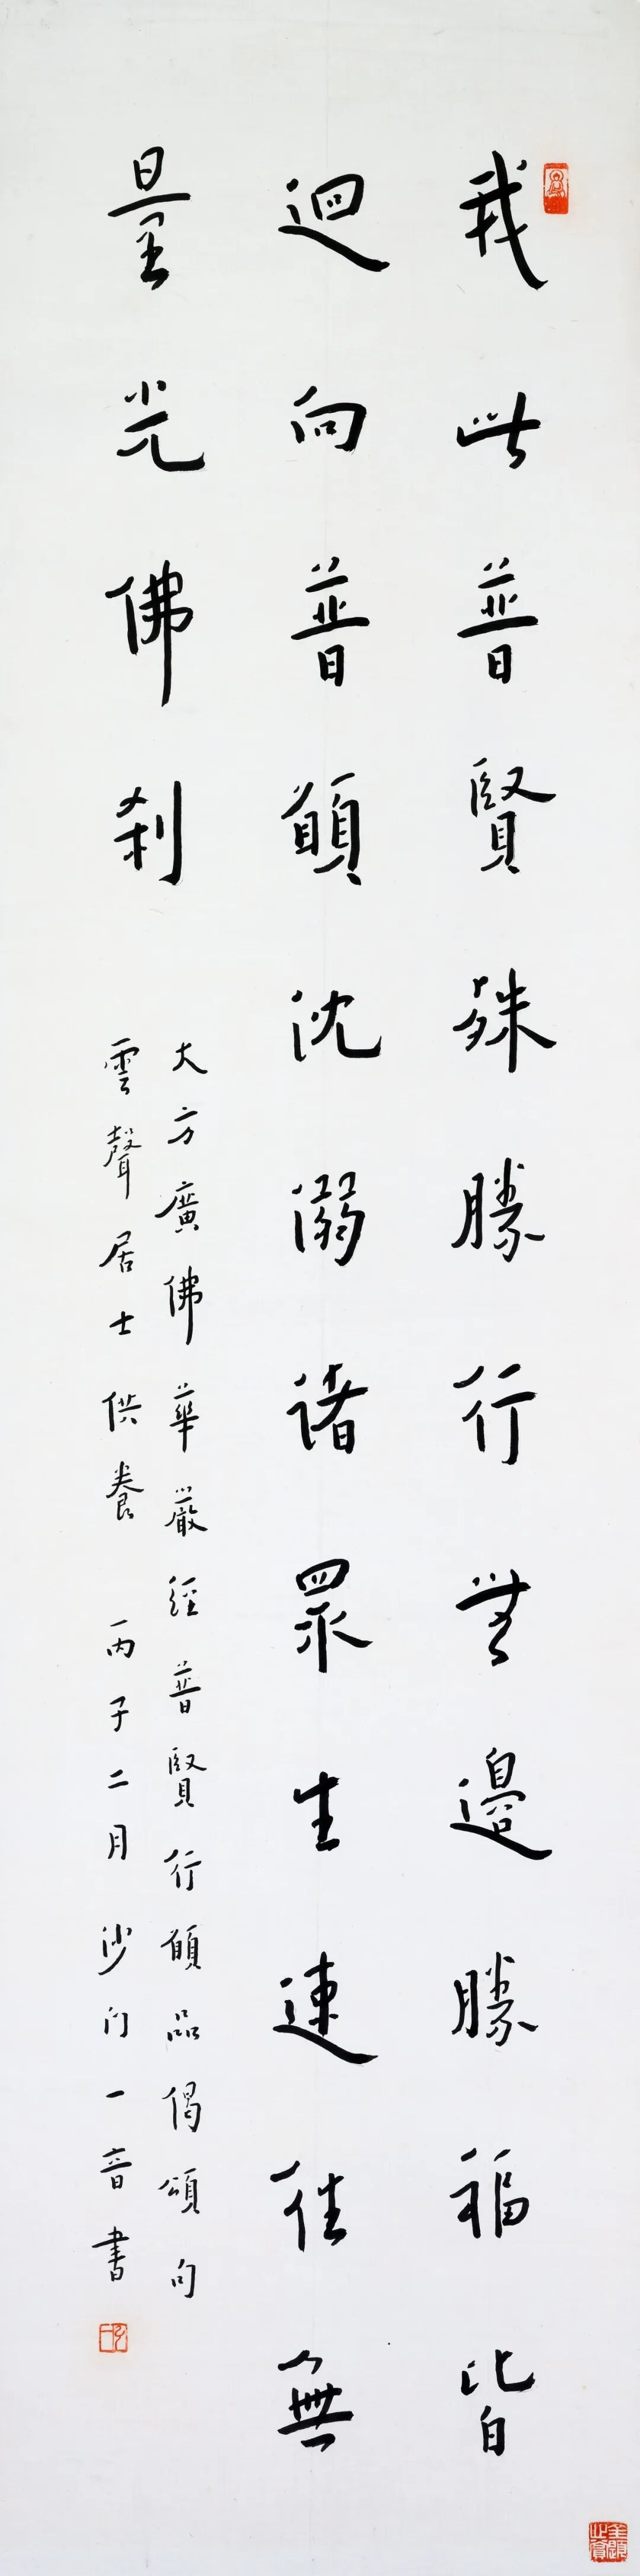 我此普賢殊勝行無邊勝福皆
迴向普願沈溺諸眾生速往無
量光佛刹
大方廣佛華嚴經普賢行願品偈頌句
雲聲居士供養 丙子二月沙門一音書